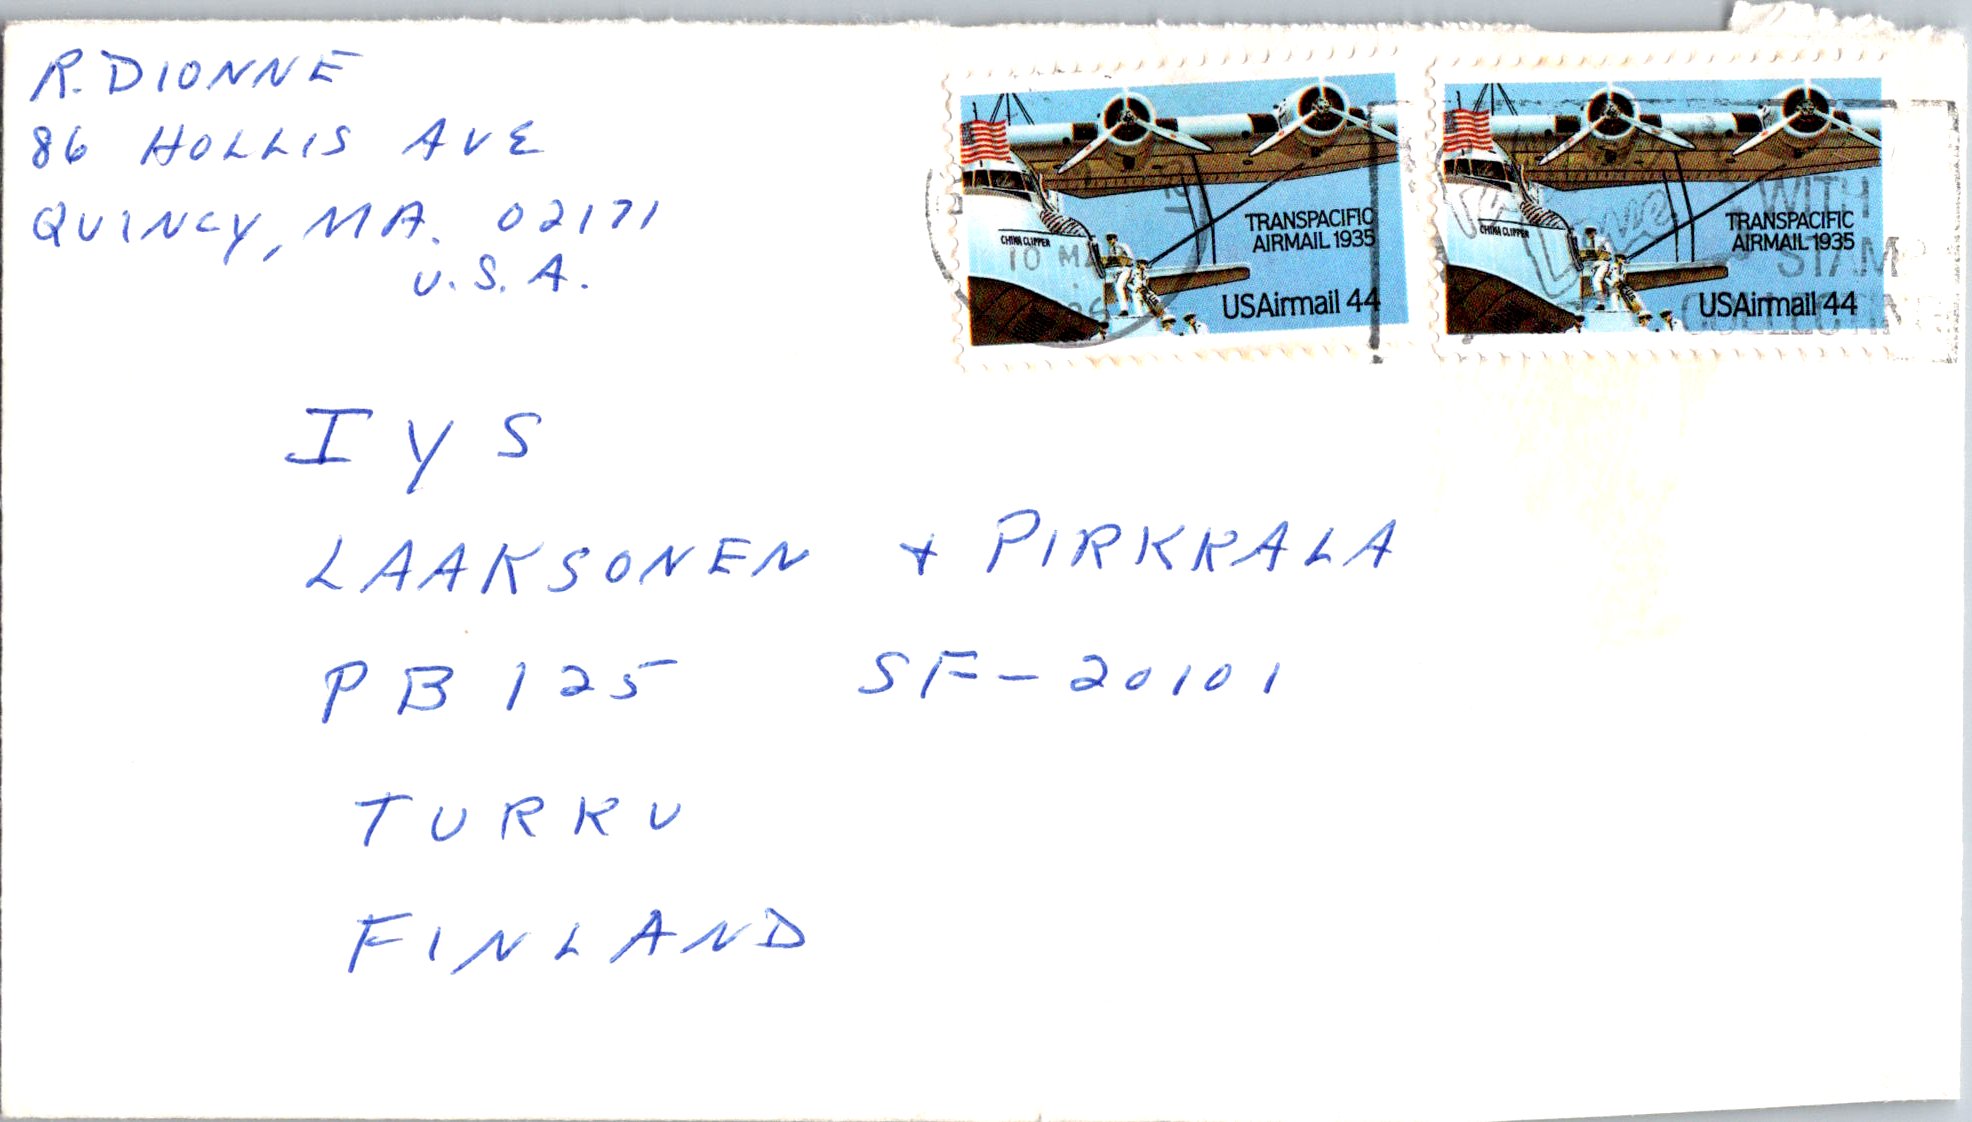 R. DIONNE
86 HOLLIS AVE
QUINCY, MA. 02171
U.S.A.
CHINA CLIPPER
TRANSPACIFIC
AIRMAIL 1935
USAirmail 44
CHINA CLIPPER
TRANSPACIFIC
AIRMAIL 1935
USAirmail 44
10
Love
WITH
STAMP
COLLECTING
IYS
LAAKSONEN + PIRKKALA
PB 125 SF-20101
TURKU
FINLAND